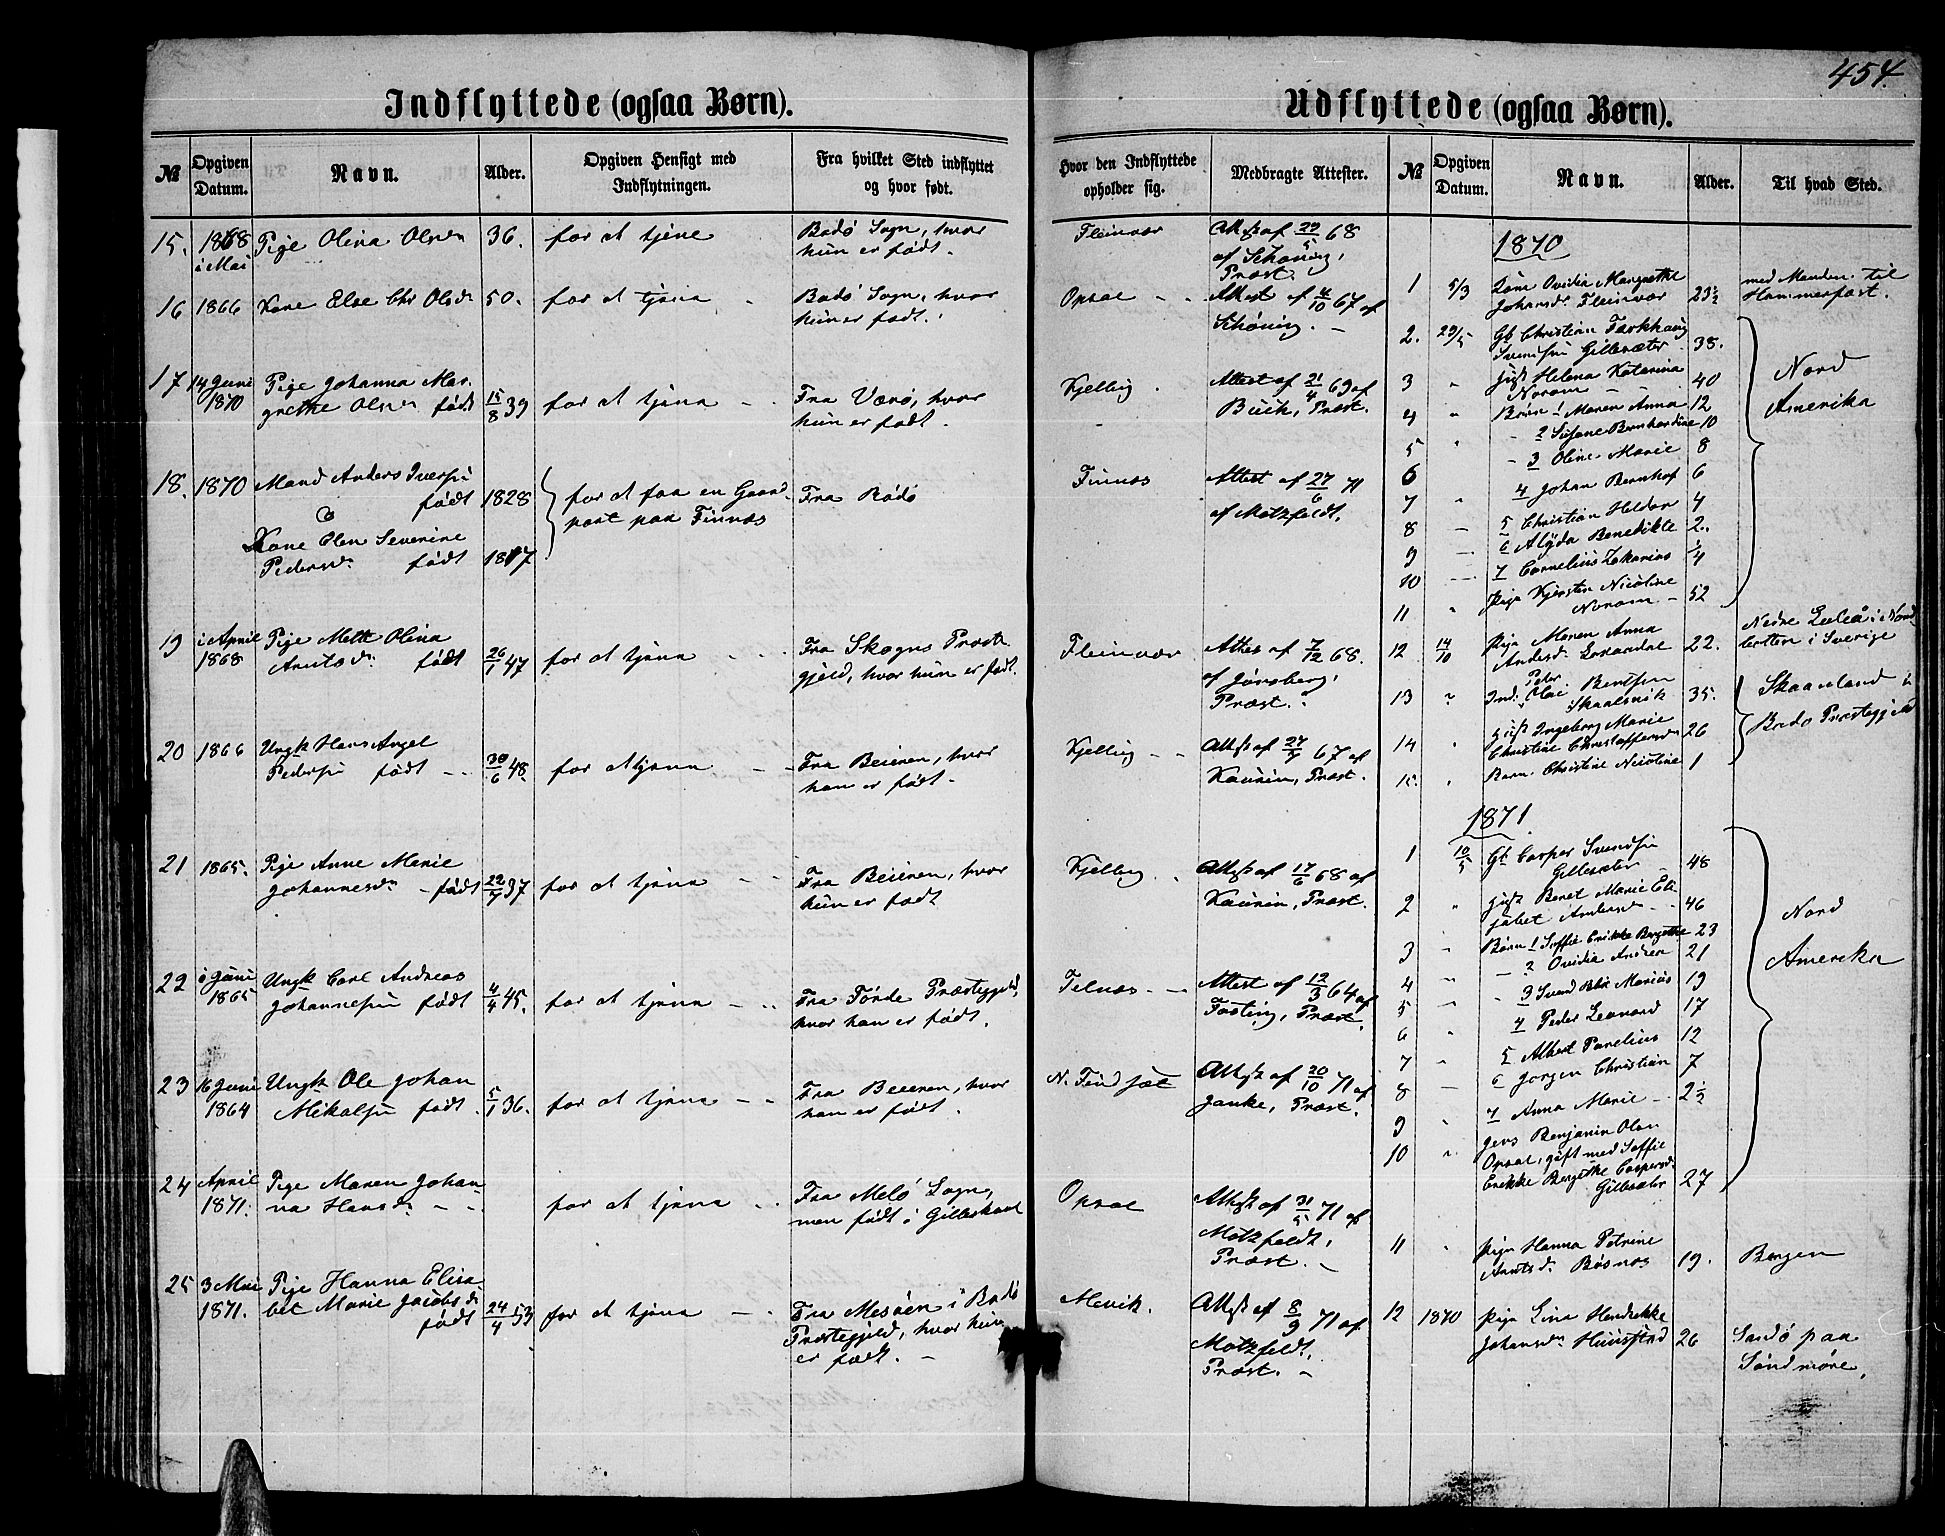 454.
Indflyttede (ogsaa Børn).
№ Opgiven Datum. Navn. Alder. Opgiven Hensigt med Indflytningen. Fra hvilket Sted indflyttet og hvor født.
15. 1868 i Mai Pige Olina Olsdr 36. for at tjene Bodø Sogn, hvor hun er født.
16 1866 Kone Else Chr Olsdr 50. for at tjena Bodø Sogn, hvor hun er født.
17 14 Juni 1870 Pige Johanna Margrethe Olsdr født 15/8 39 for at tjena Fra Værø, hvor hun er født.
18. 1870 Mand Anders Iversøn født 1828 for at faa en Gaardpart paa Finnæs Fra Bodø
& Kone Elen Severine Pedersdr født 1817
19 i April 1868 Pige Mette Olina Arntsdr født 26/1 47 for at tjena Fra Skogns Præstegjeld, hvor hun er født.
20 1866 Ungk Hans Angel Pedersøn født 30/6 48. for at tjena Fra Beieren, hvor han er født.
21 1865. Pige Anne Marie Johannesdr født 22/7 37 for at tjena Fra Beieren, hvor hun er født
22 i Juni 1865 Ungk Carl Andreas Johannesøn født 4/4 45. for at tjena Fra Førde Præstegjeld, hvor han er født.
23 16 Juni 1864 Ungk Ole Johan Mikalsøn født 5/1 36. for at tjena Fra Beieren, hvor han er født.
24 April 1871. Pige Maren Johanna Hansdr for at tjena Fra Melø Sogn, men født i Gilleskaal
25 3 Mai 1871. Pige Hanna Elisabet Marie Jacobsdr født 24/4 53 for at tjena Fra Mesøen i Bodø Præstegjeld, hvor hun er født.
Udflyttede (ogsaa Børn).
Hvor den Indflyttede opholder sig. Medbragte Attester.
Fleinvær Attest af 29/5 68 af Schøning, Præst.
Opsal Attest af 4/10 67 af Schøning.
Kjelling Attest af 21/4 69 af Buch, Præst.
Finnæs Attest af 27/6 71 af Motzfeldt.
Fleinvær Attest af 7/12 68. af Jønsberg, Præst.
Kjelling Attest af 27/5 67 af Kaurin, Præst.
Kjelling Attest af 17/6 68 af Kaurin, Præst.
Felnæs Attest af 12/3 64 af Fasting, Præst.
N. Findsæt Attest af 20/10 71 af Janke, Præst.
Opsal Attest af 31/5 71 af Motzfeldt, Præst.
Mevik. Attest af 8/9 71 af Motzfeldt, Præst.
№ Opgiven Datum. Navn. Alder. Til hvad Sted.
1870
1 5/3 Kone Ovidia Margrethe Johansdr Fleinvær 23½ med Manden til Hammerfæst.
2. 29/5 Gb Christian Torkhaug Svendsen Gillesæter 38. Nord Amerika
3 " Gift Helena Katarina Noram 40
4 " Børn 1 Maren Anna 12
5 " 2 Susane Bernhardine 10
6 3 Oline Marie 8
7 " 4 Johan Bernhof 6
8 5 Christian Heldor 4
9 6 Alyda Benedikte 2.
10 7 Cornelius Zakarias ¼
11 " Pige Kjersten Nicoline Noram 52
12 14/10 Pige Maren Anna Andersdr 22. Nedre Luleå i Norrbotten i Sverige
13 " Ind. Peder Olai Bentsen Skaalsvik 35. Skaanland i Bodø Præstegjeld
14 " Gift Ingeborg Marie Christine Christoffersdr 26
15. " Barn Christine Nicoline 1
1871
1 10/5 Gb. Casper Svendsen Gillesæter 48 Nord Amerika
2 " Gift Beret Marie Elisabet Andersdr 46
3 " Børn 1 Soffie Erikke Bergithe 23
4 " 2 Ovidia Andrea 21
5 " 3 Svend Marius 19
6 " 4 Peder Leonard 17
7 " 5 Albert Parelius 12
8 6 Jørgen Christian 7
9 " 7 Anna Marie 2½
10 " Benjamin Olsen Opsal, gift med Soffie Erikke Bergithe Caspersdr Gillesæter 27
11 " Pige Hanna Petrine Arntsdr Bøsnæs 19. Bergen
12 1870 Pige Lina Hendrikke Johansdr 26 Sandø paa Søndmøre.